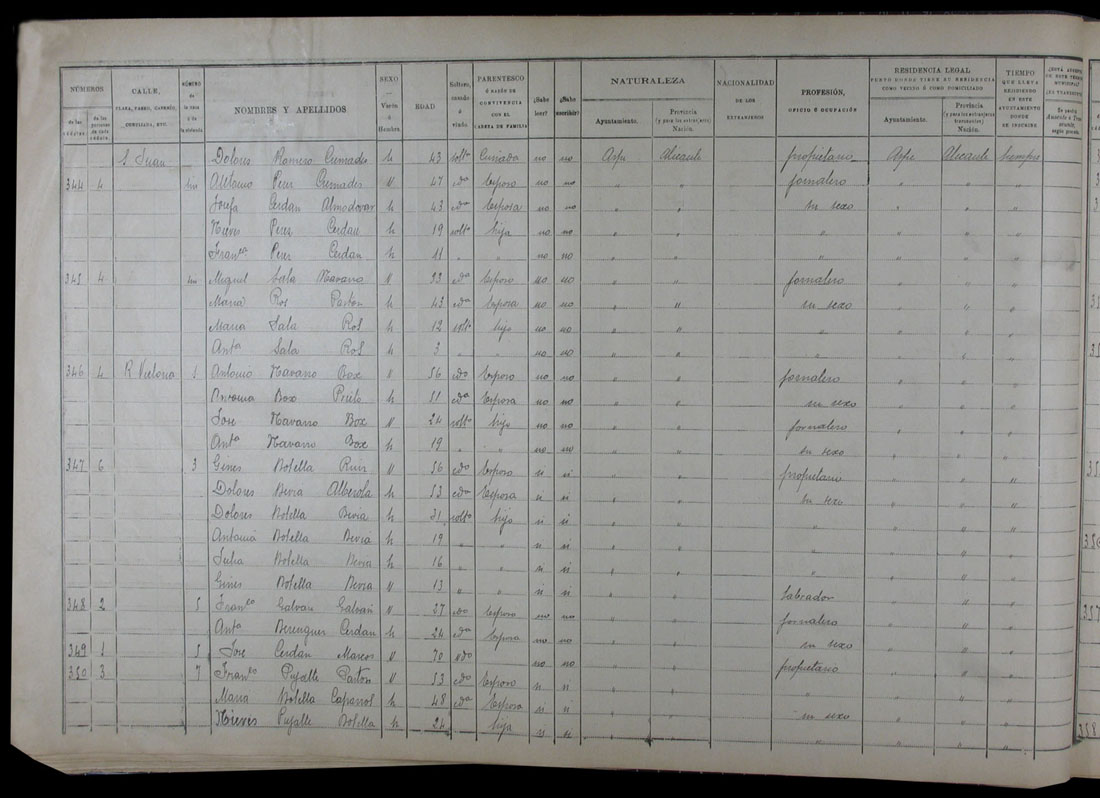 NÚMEROS
de las cédulas. de las personas de cada cédula.
CALLE, PLAZA, PASEO, CAPERÍO, COMPLIANIA, ETC.
NÚMERO de la casa ó de la vivienda
NOMBRES Y APELLIDOS
SEXO — Varón ó Hembra.
EDAD
Soltero, casado ó viudo.
PARENTESCO Ó RAZÓN DE CONVIVENCIA CON EL CABEZA DE FAMILIA
¿Sabe leer? ¿Sabe escribir?
NATURALEZA
Ayuntamiento. Provincia (y para los extranjeros) Nación.
NACIONALIDAD DE LOS EXTRANJEROS
PROFESIÓN, OFICIO Ó OCUPACIÓN
RESIDENCIA LEGAL
PUNTO DONDE TIENE SU RESIDENCIA COMO VECINO Ó COMO DOMICILIADO
Ayuntamiento. Provincia (y para los extranjeros transeuntes) Nación.
TIEMPO QUE LLEVA RESIDIENDO EN ESTE AYUNTAMIENTO DONDE SE INSCRIBE
S. Juan Dolores Romero Cremades h 43 solta Criada no no Aspe Alicante propietario Aspe Alicante siempre
344 4 Antonio Perez Cremades V 47 cdo Esposo no no " " jornalero " " "
Josefa Cerdan Almodovar h 43 cda Esposa no no " " su sexo " " "
Nieves Perez Cerdan h 19 solta hija no no " " " " " "
Franca Perez Cerdan h 11 " " no no " " " " " "
345 4 Miguel Sala Navarro V 53 cdo Esposo no no " " jornalero " " "
Maria Ros Pastor h 43 cda Esposa no no " " su sexo " " "
Maria Sala Ros h 12 solta hija no no " " " " " "
Anta Sala Ros h 3 " " no no " " " " " "
346 4 R. Victoria 1 Antonio Navarro Box V 56 cdo Esposo no no " " jornalero " " "
Antonia Box Prieto h 51 cda Esposa no no " " su sexo " " "
Jose Navarro Box V 24 solto hijo no no " " jornalero " " "
Anta Navarro Box h 19 " " no no " " su sexo " " "
347 6 3 Gines Botella Ruiz V 56 cdo Esposo si si " " propietario " " "
Dolores Bevia Alberola h 53 cda Esposa si si " " su sexo " " "
Dolores Botella Bevia h 31 solta hija si si " " " " " "
Antonia Botella Bevia h 19 " " si si " " " " " "
Julia Botella Bevia h 16 " " si si " " " " " "
Gines Botella Bevia V 13 " " si si " " labrador " " "
348 2 5 Franco Galvañ Galvañ V 27 cdo Esposo no no " " jornalero " " "
Anta Berenguer Cerdan h 24 cda Esposa no no " " su sexo " " "
349 1 5 Jose Cerdan Marcos V 70 vdo no no " " propietario " " "
350 3 7 Franco Pujalte Pastor V 53 cdo Esposo si si " " " " "
Maria Botella Caparros h 48 cda Esposa si si " " su sexo " " "
Nieves Pujalte Botella h 24 " hija si si " " " " " "
358